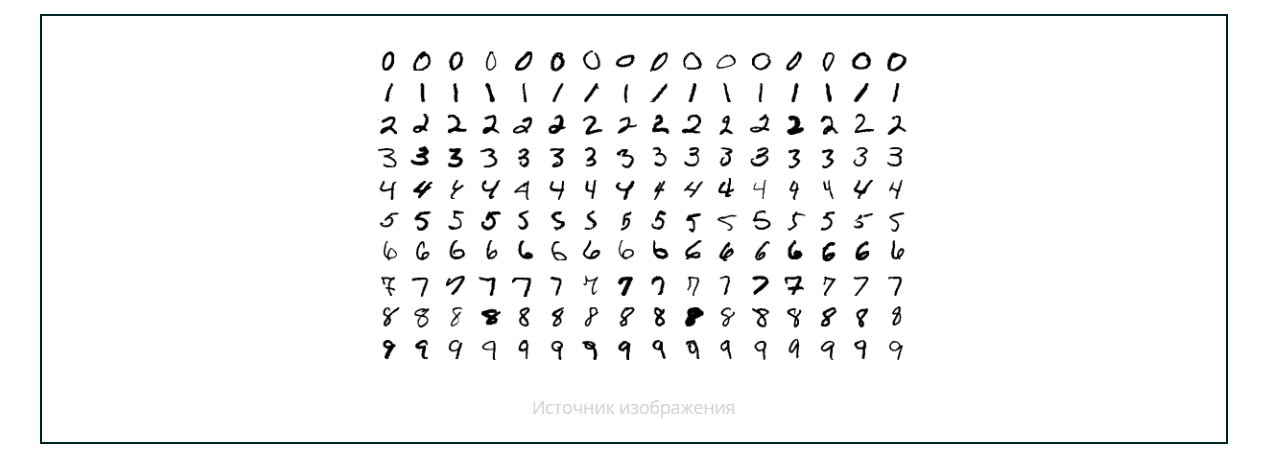 0 0 0 0 0 0 0 0 0 0 0 0 0 0 0 0
1 1 1 1 1 1 1 1 1 1 1 1 1 1 1 1
2 2 2 2 2 2 2 2 2 2 2 2 2 2 2 2
3 3 3 3 3 3 3 3 3 3 3 3 3 3 3 3
4 4 4 4 4 4 4 4 4 4 4 4 4 4 4 4
5 5 5 5 5 5 5 5 5 5 5 5 5 5 5 5
6 6 6 6 6 6 6 6 6 6 6 6 6 6 6 6
7 7 7 7 7 7 7 7 7 7 7 7 7 7 7 7
8 8 8 8 8 8 8 8 8 8 8 8 8 8 8 8
9 9 9 9 9 9 9 9 9 9 9 9 9 9 9 9
Источник изображения